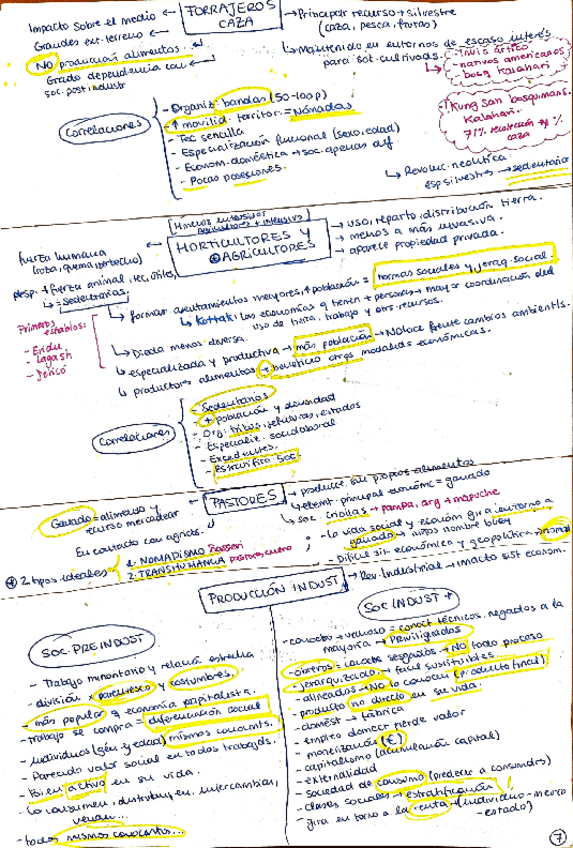 FORRAJEROS CAZA
Impacto sobre el medio ←
Grandes ext. terreno ←
NO producción alimentos.
Grado dependencia con ←
soc. postindustr
→ Principal recurso → silvestre
(caza, pesca, frutas)
→ Mantenido en entornos de escaso interés
para sot. cultivads.
- Inuis ártico
- nativos americanos
- bosq Kalahari
!Kung San bosquimans.
Kalahari.
71% recolección 29 %
caza
Correlaciones
- Organiz: bandas (50-100p)
- ↑ movilid. territor. = Nómadas
- Tec sencilla
- Especialización funcional (sexo, edad)
- Econom. doméstica → soc. apenas dif.
- Pocas posesiones.
→ Revoluc. neolítica
esp silvestres → sedentario
agricultores + intensivo
HORTICULTORES Y
AGRICULTORES
fuerza humana ←
(roba, quema, barbecho)
desp. + fuerza animal, tec, útiles,
= sedentarias.
→ uso, reparto, distribución tierra.
→ menos a más invasiva.
→ aparece propiedad privada.
Primeros
establos:
- Eridu
- Lagash
- Jericó
→ formar asentamientos mayores, ↑ población = normas sociales y jerarq. social.
→ Kottak: las economías q tenen + personas → mayor coordinación del
uso de tierra, trabajo y otrs recursos.
→ Dieta menos diversa.
→ especializada y productiva → más población → No loca frente cambios ambientls.
→ productors alimentos → beneficio otrqs modalids económicas.
Correlaciones
- Sedentarios
- + población y densidad
- Org: tribus, jefaturas, estados
- Especializ. sociolaboral
- Excedentes.
- Estratifica. Soc.
PASTORES
Ganado = alimento y
recurso mercadear
En contacto con agrics.
→ producc. sus propios alimentos
→ element. principal económc = ganado
→ soc. criollas → pampa, arg + mapuche
- La vida social y económ gira entorno a
ganado → niños nombre buey
- Difícil sit. económica y geopolítica →
2 tipos ideales
1. NOMADISMO Basseri
2. TRANSHUMANCIA pastores, cuatro
PRODUCCIÓN INDUST
→ Rev. Industrial → impacto sist econom.
SOC. PREINDUST
- Trabajo minoritario y relación estrecha
- división x parentesco y costumbres.
- más popular q economía capitalista.
- trabajo se compra = diferenciación social
- Individuos (gén. y edad) mismos conocmts.
- Parecido valor social en todos trabajds.
- Rol en activo en su vida.
- Lo consumen, distribuyen, intercambian,
venden...
- todos mismos conocmtos...
SOC INDUST +
- concepto + valioso = conoct técnicos, negados a la
mayoría → Privilegiados
- obreros = conocts sesgados → NO todo proceso
- jerarquizado → fácil sustituibles
- alineados → No lo conocen (producto final)
- producto no directo en su vida.
- domést → fábrica
- empleo domect pierde valor
- monetización (€)
- capitalismo (acumulación capital)
- externalidad
- sociedad de consumo (predece a consumidrs)
- clases sociales → estratificación!
- gira en torno a la renta → (individuo - merco
- estado)
7